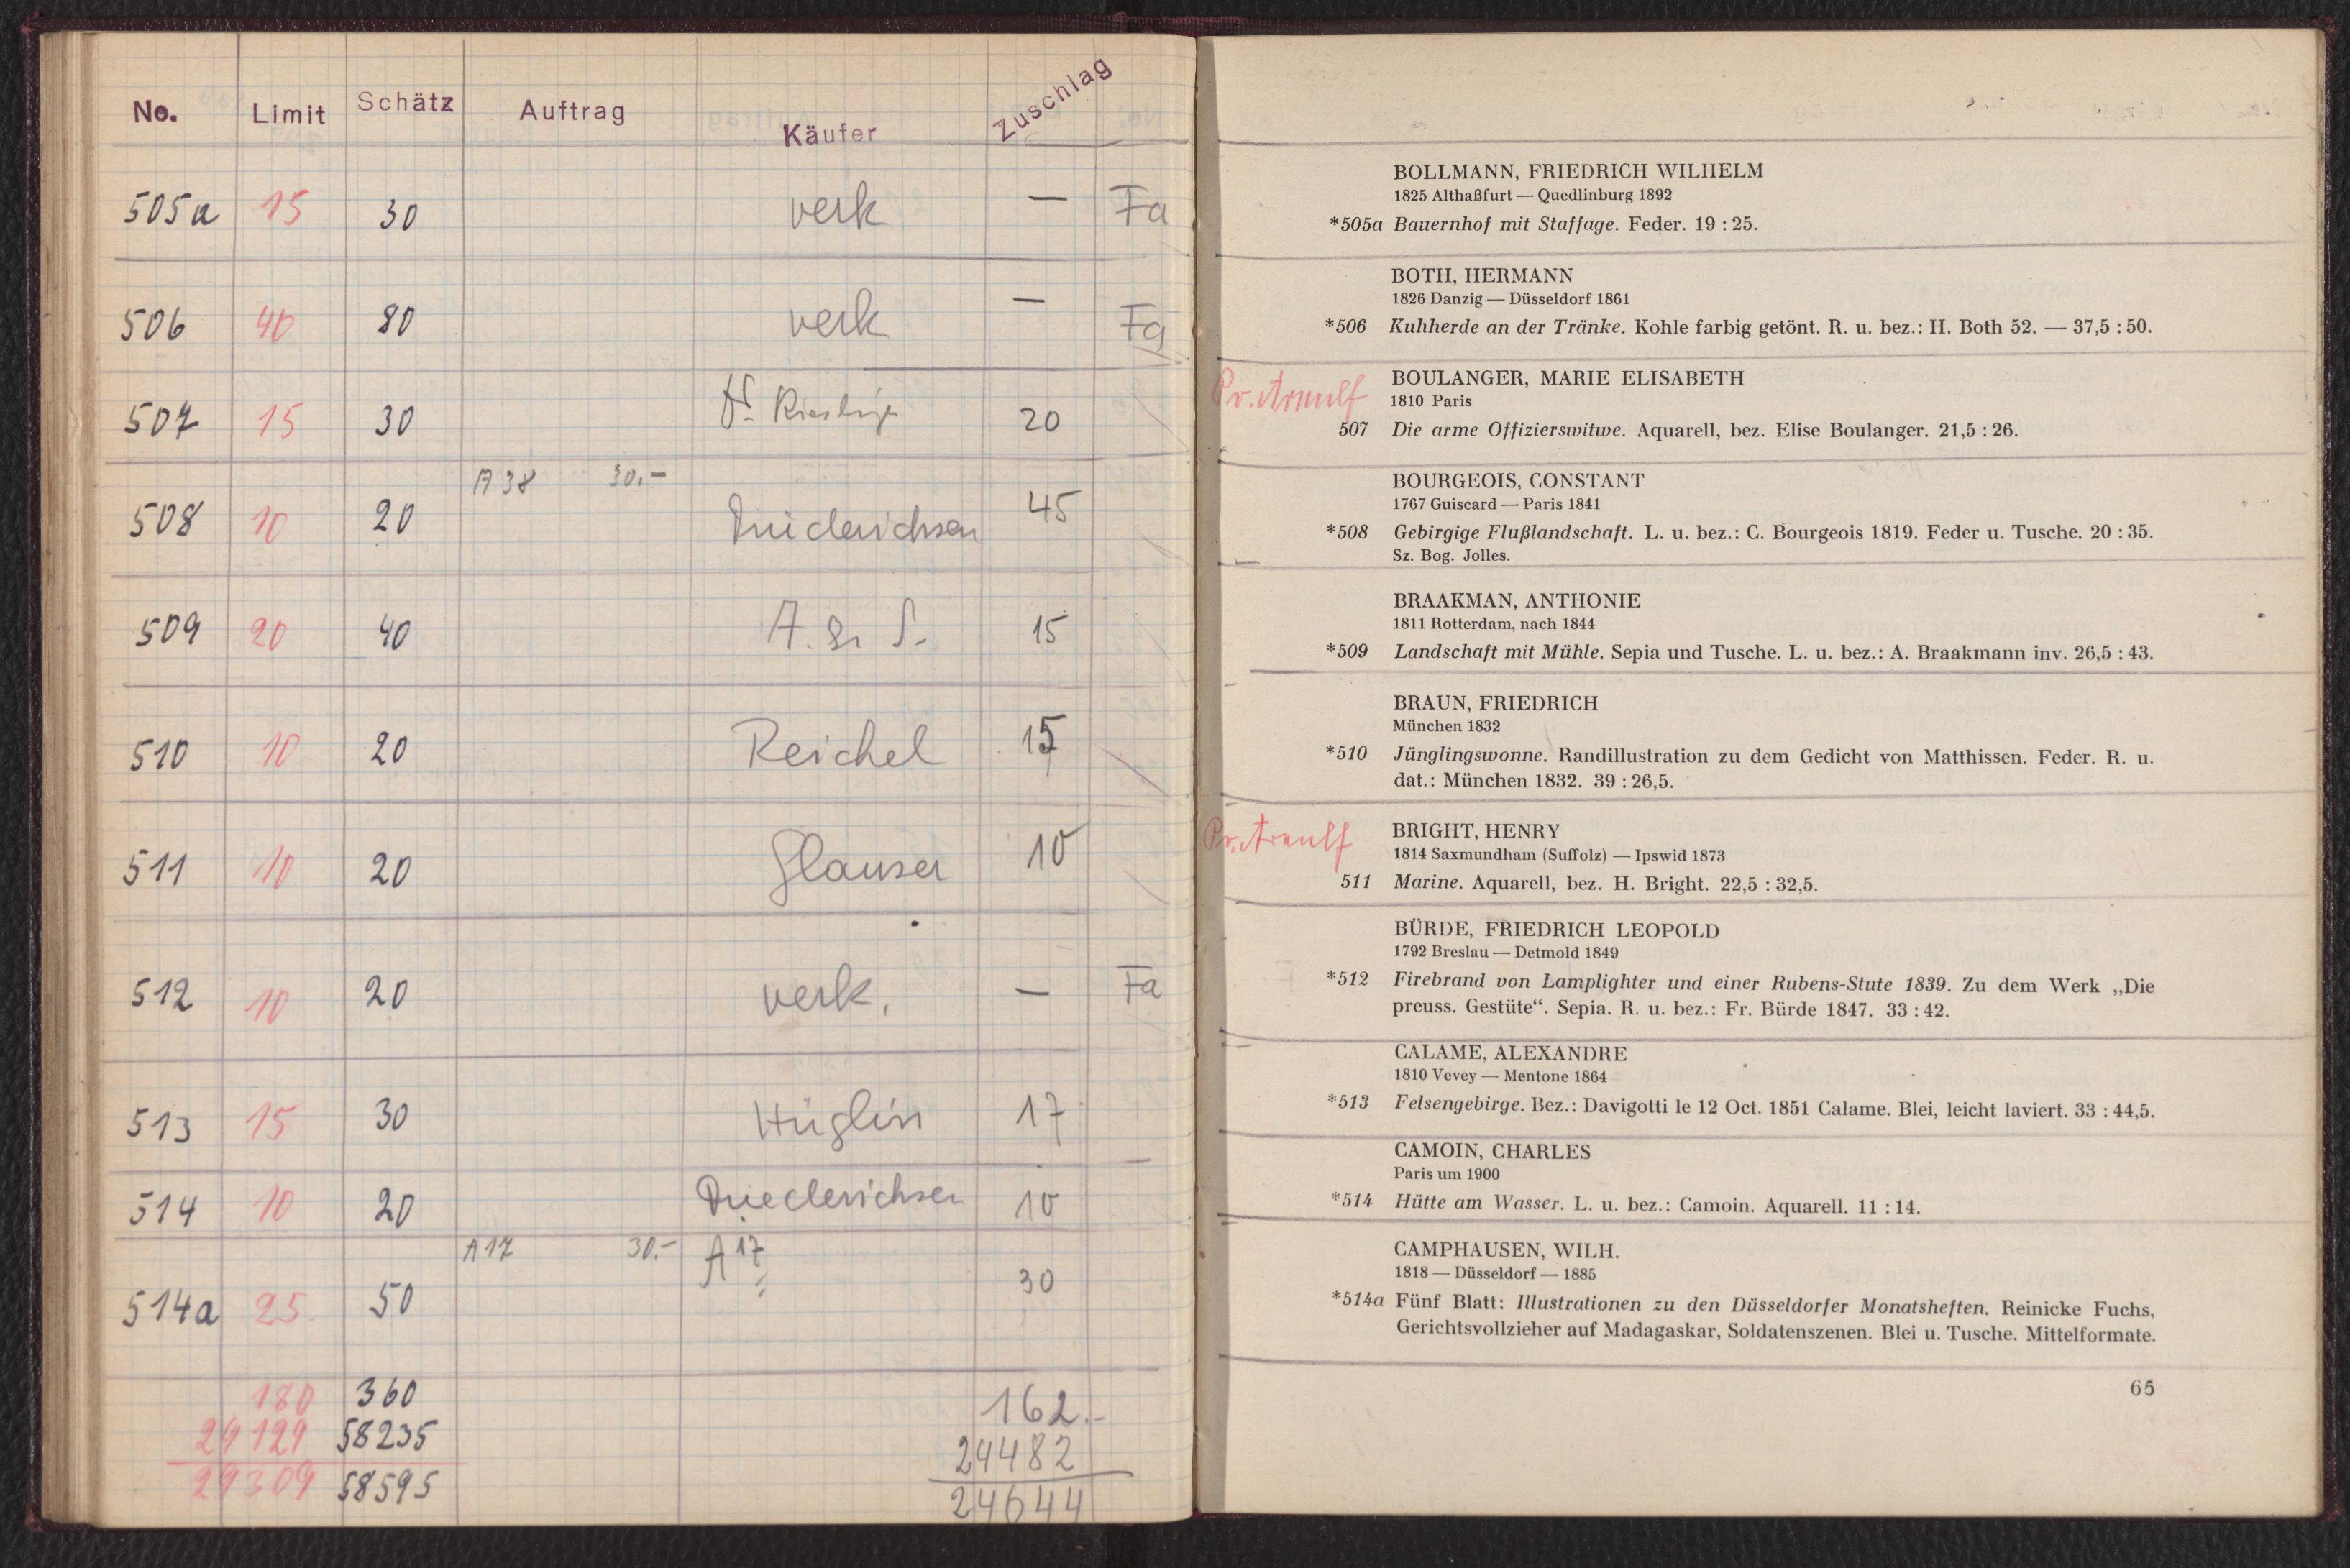 No. Limit Schätz Auftrag Käufer Zuschlag
505a 15 30 verk — Fa
506 40 80 verk — Fa
507 15 30 Dr. 20
508 10 20 A 38 30.- 45
509 20 40 15
510 10 20 Reichel 15
511 10 20 Glauser 10
512 10 20 verk. — Fa
513 15 30 Hüglin 17
514 10 20 Diederichsen 10
514a 25 50 A 17 30.- A 17 30
180 360 162.-
29129 58235 24482
29309 58595 24644
BOLLMANN, FRIEDRICH WILHELM
1825 Althaßfurt — Quedlinburg 1892
*505a Bauernhof mit Staffage. Feder. 19 : 25.
BOTH, HERMANN
1826 Danzig — Düsseldorf 1861
*506 Kuhherde an der Tränke. Kohle farbig getönt. R. u. bez.: H. Both 52. — 37,5 : 50.
Pr. Arnulf
BOULANGER, MARIE ELISABETH
1810 Paris
507 Die arme Offizierswitwe. Aquarell, bez. Elise Boulanger. 21,5 : 26.
BOURGEOIS, CONSTANT
1767 Guiscard — Paris 1841
*508 Gebirgige Flußlandschaft. L. u. bez.: C. Bourgeois 1819. Feder u. Tusche. 20 : 35.
Sz. Bog. Jolles.
BRAAKMAN, ANTHONIE
1811 Rotterdam, nach 1844
*509 Landschaft mit Mühle. Sepia und Tusche. L. u. bez.: A. Braakmann inv. 26,5 : 43.
BRAUN, FRIEDRICH
München 1832
*510 Jünglingswonne. Randillustration zu dem Gedicht von Matthissen. Feder. R. u.
dat.: München 1832. 39 : 26,5.
Pr. Arnulf
BRIGHT, HENRY
1814 Saxmundham (Suffolz) — Ipswid 1873
511 Marine. Aquarell, bez. H. Bright. 22,5 : 32,5.
BÜRDE, FRIEDRICH LEOPOLD
1792 Breslau — Detmold 1849
*512 Firebrand von Lamplighter und einer Rubens-Stute 1839. Zu dem Werk „Die
preuss. Gestüte“. Sepia. R. u. bez.: Fr. Bürde 1847. 33 : 42.
CALAME, ALEXANDRE
1810 Vevey — Mentone 1864
*513 Felsengebirge. Bez.: Davigotti le 12 Oct. 1851 Calame. Blei, leicht laviert. 33 : 44,5.
CAMOIN, CHARLES
Paris um 1900
*514 Hütte am Wasser. L. u. bez.: Camoin. Aquarell. 11 : 14.
CAMPHAUSEN, WILH.
1818 — Düsseldorf — 1885
*514a Fünf Blatt: Illustrationen zu den Düsseldorfer Monatsheften. Reinicke Fuchs,
Gerichtsvollzieher auf Madagaskar, Soldatenszenen. Blei u. Tusche. Mittelformate.
65